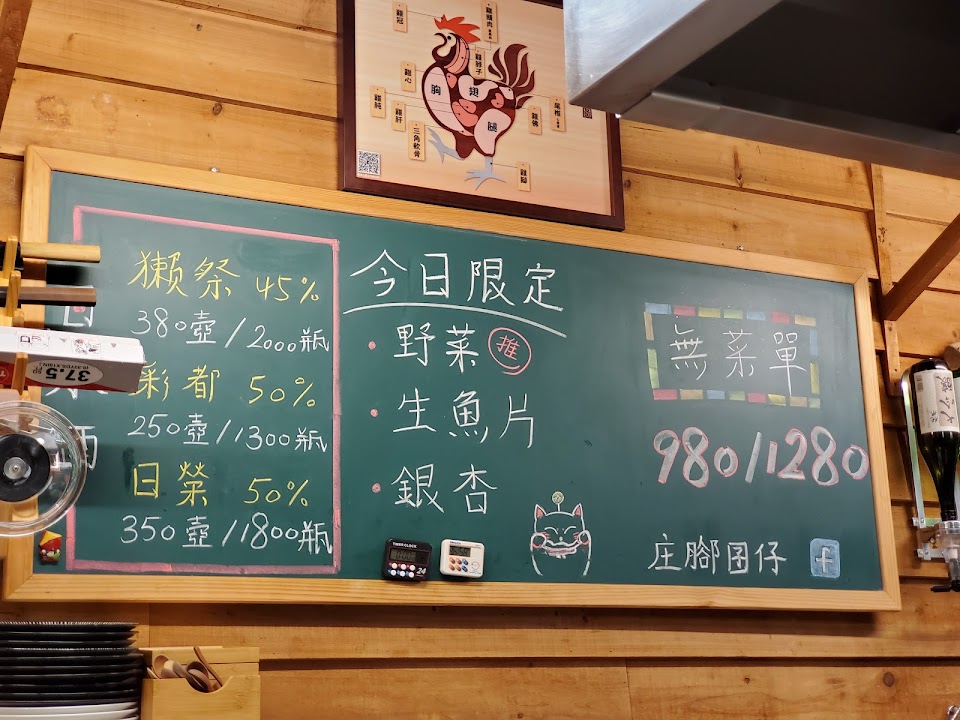 雞冠
雞心
胸
翅
腿
雞肝
三角軟骨
雞佛
雞腳
獺祭 45%
380壺/2000瓶
彩都 50%
250壺/1300瓶
日榮 50%
350壺/1800瓶
酒
37.5
今日限定
・野菜 推
・生魚片
・銀杏
無菜單
980/1280
庄腳囝仔 f